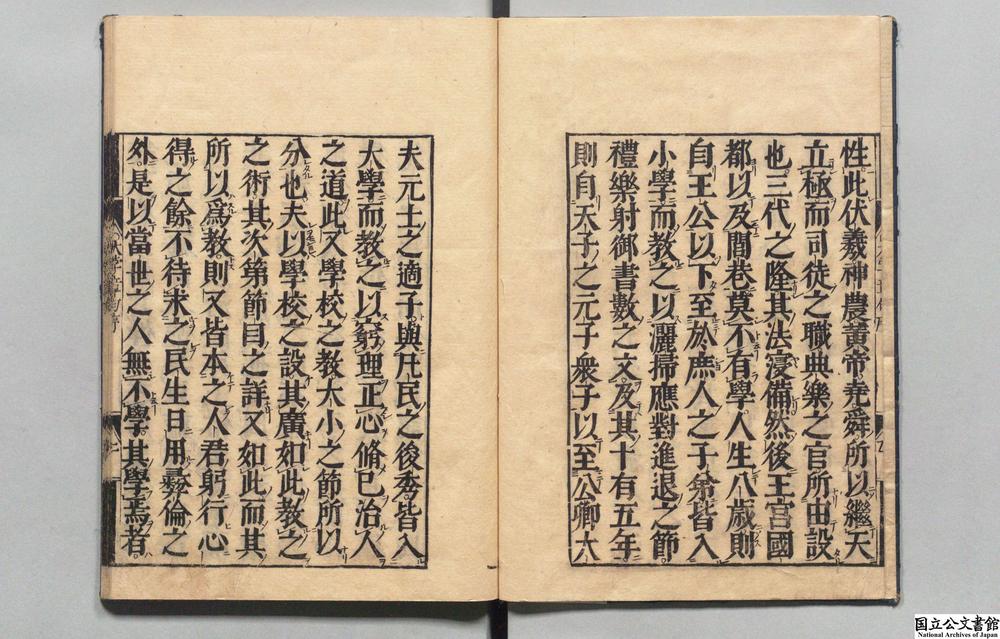 性此伏羲神農黄帝堯舜所以繼天
立極而司徒之職典樂之官所由設
也三代之隆其法寖備然後王宮國
都以及閭巷莫不有學人生八歳則
自王公以下至於庶人之子弟皆入
小學而教之以灑掃應對進退之節
禮樂射御書數之文及其十有五年
則自天子之元子衆子以至公卿大
夫元士之適子與凡民之俊秀皆入
大學而教之以窮理正心脩己治人
之道此又學校之教大小之節所以
分也夫以學校之設其廣如此教之
之術其次第節目之詳又如此而其
所以爲教則又皆本之人君躬行心
得之餘不待求之民生日用彝倫之
外是以當世之人無不學其學焉者
国立公文書館
National Archives of Japan